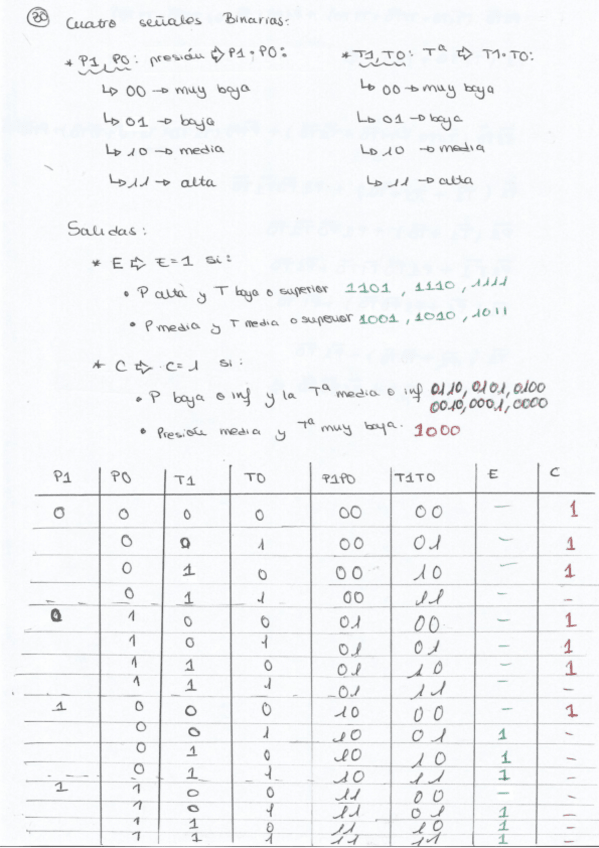 30 Cuatro señales Binarias:
* P1, P0: presión ⇨ P1·P0:
↳ 00 → muy baja
↳ 01 → baja
↳ 10 → media
↳ 11 → alta
* T1, T0: Tª ⇨ T1·T0:
↳ 00 → muy baja
↳ 01 → baja
↳ 10 → media
↳ 11 → alta
Salidas:
* E ⇨ E=1 si:
• P alta y T baja o superior 1101, 1110, 1111
• P media y T media o superior 1001, 1010, 1011
* C ⇨ C=1 si:
• P baja o inf y la Tª media o inf 0110, 0101, 0100
0010, 0001, 0000
• Presión media y Tª muy baja. 1000
P1 P0 T1 T0 P1P0 T1T0 E C
0 0 0 0 00 00 – 1
0 0 1 00 01 – 1
0 1 0 00 10 – 1
0 1 1 00 11 – –
0 1 0 0 01 00 – 1
1 0 1 01 01 – 1
1 1 0 01 10 – 1
1 1 1 01 11 – –
1 0 0 0 10 00 – 1
0 0 1 10 01 1 –
0 1 0 10 10 1 –
0 1 1 10 11 1 –
1 1 0 0 11 00 – –
1 0 1 11 01 1 –
1 1 0 11 10 1 –
1 1 1 11 11 1 –